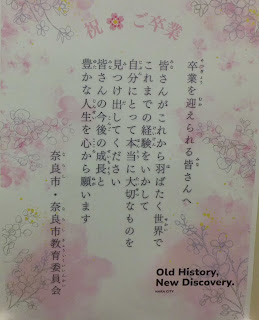 祝 ご卒業
卒業を迎えられる皆さんへ
皆さんがこれから羽ばたく世界で
これまでの経験をいかして
自分にとって本当に大切なものを
見つけ出してください
皆さんの今後の成長と
豊かな人生を心から願います
奈良市・奈良市教育委員会
Old History,
New Discovery.
NARA CITY